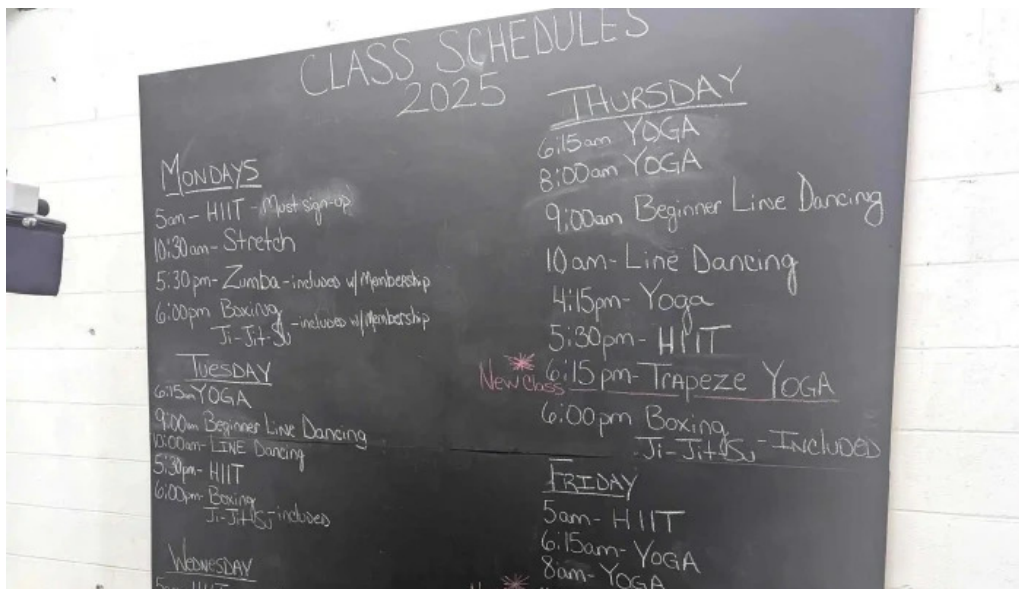 CLASS SCHEDULES
2025
MONDAYS
5am - HIIT - Must sign-up
10:30am - Stretch
5:30pm - Zumba - included w/Membership
6:00pm Boxing
Ji-Jit-Su - included w/Membership
TUESDAY
6:15am YOGA
9:00am Beginner Line Dancing
10:00am - LINE Dancing
5:30pm - HIIT
6:00pm - Boxing
Ji-Jit-Su - included
WEDNESDAY
5am - HIIT
THURSDAY
6:15am YOGA
8:00am YOGA
9:00am Beginner Line Dancing
10am - Line Dancing
4:15pm - Yoga
5:30pm - HIIT
New Class 6:15pm - TRAPEZE YOGA
6:00pm Boxing
Ji-Jit-Su - INCLUDED
FRIDAY
5am - HIIT
6:15am - YOGA
8am - YOGA